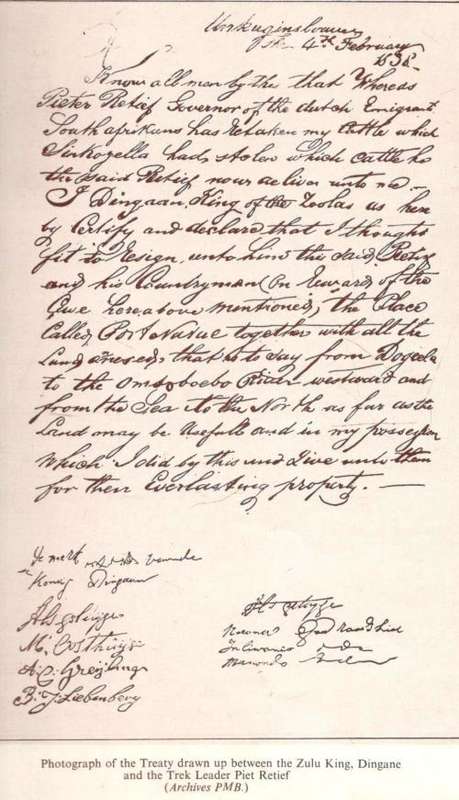 Unkuginsloave
the 4th February
1838
Know all men by this that Whereas
Pieter Retief Governor of the dutch Emigrant
South afrikans has Retaken my Cattle which
Sinkonyella had stolen which cattle he
the said Retief now deliver unto me
I Dingaan, King of the Zoolas as here
by Certify and declare that I thought
fit to Resign unto him the said Retief
and his Countryman (on Reward of the
Case hereabove mentioned) the Place
Called Port Natal together with all the
Land annexed, that is to say from Dogeela
to the Omsoboebo River westward and
from the Sea to the North as far as the
Land may be Usefull and in my possession
Which I did by this and Give unto them
for their Everlasting property. —
De merk
Koning Dingaan
M. Oosthuyse
A. C. Greyling
B. J. Liebenberg
Moaro Great Raadslid
Juliwanus do
Manondo
Photograph of the Treaty drawn up between the Zulu King, Dingane
and the Trek Leader Piet Retief
(Archives PMB.)